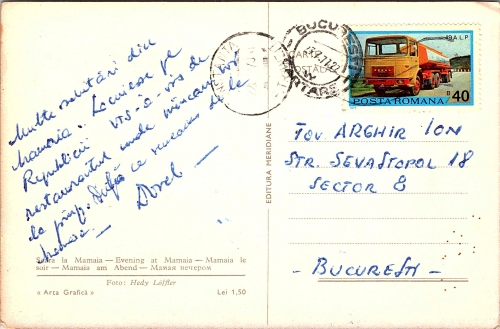 Multe salutări din
Mamaia. Locuiesc pe
Republicii vis-à-vis de
restaurantul unde mîncam
la După ce
Dorel —
Seara la Mamaia — Evening at Mamaia — Mamaia le
soir — Mamaia am Abend — Мамая вечером
Foto: Hedy Löffler
« Arta Grafică »
Lei 1,50
EDITURA MERIDIANE
BUCUREȘTI
CARTARE
19A L.P.
POSTA ROMANA
B 40
TOV. ARGHIR ION
STR. SEVASTOPOL 18
SECTOR 8
- BUCUREȘTI -